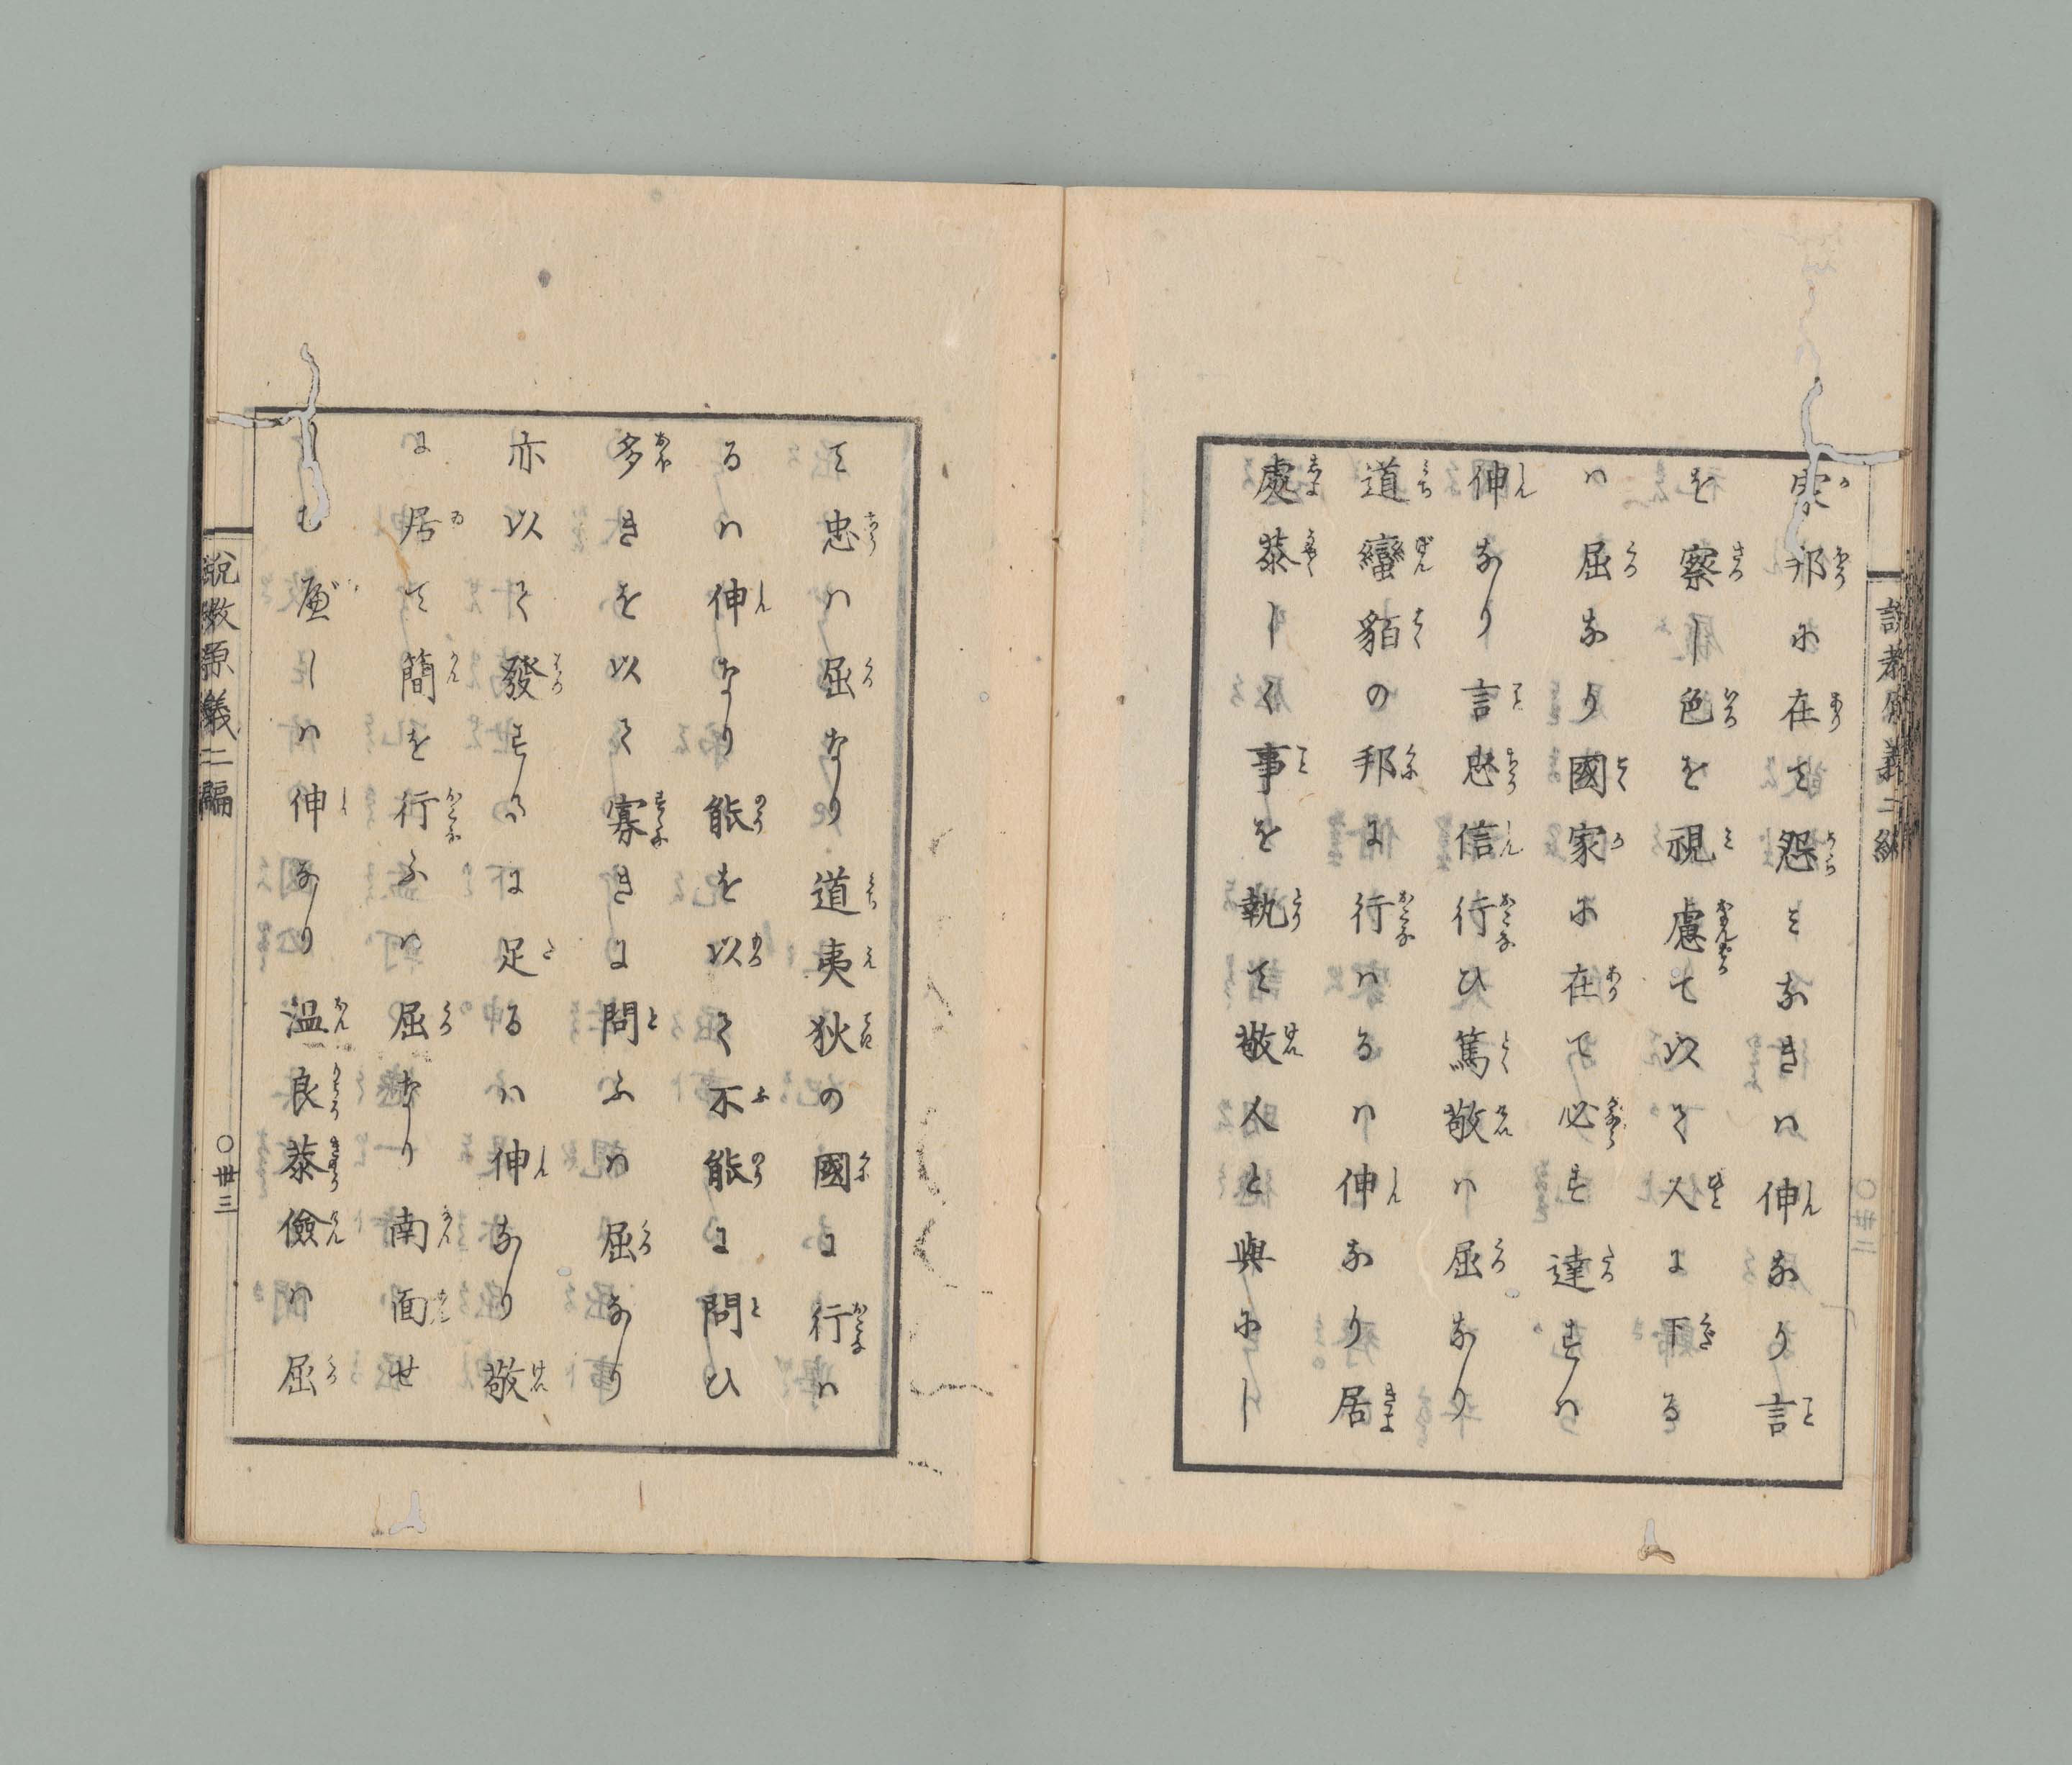 家邦に在て怨ミなきハ伸なり言
を察し色を視慮て以て人に下る
ハ屈なり國家に在て必ず達するハ
伸なり言忠信行ひ篤敬ハ屈なり
道蠻貊の邦に行ハるハ伸なり居
處恭しく事を執て敬人と與にし
て忠ハ屈なり道夷狄の國に行ハ
るハ伸なり能を以て不能に問ひ
多きを以て寡きに問ふハ屈なり
亦以て發するに足るハ伸なり敬
に居て簡を行ふハ屈なり南面せ
しむべしハ伸なり温良恭儉ハ屈
説教原義二編
〇卅三